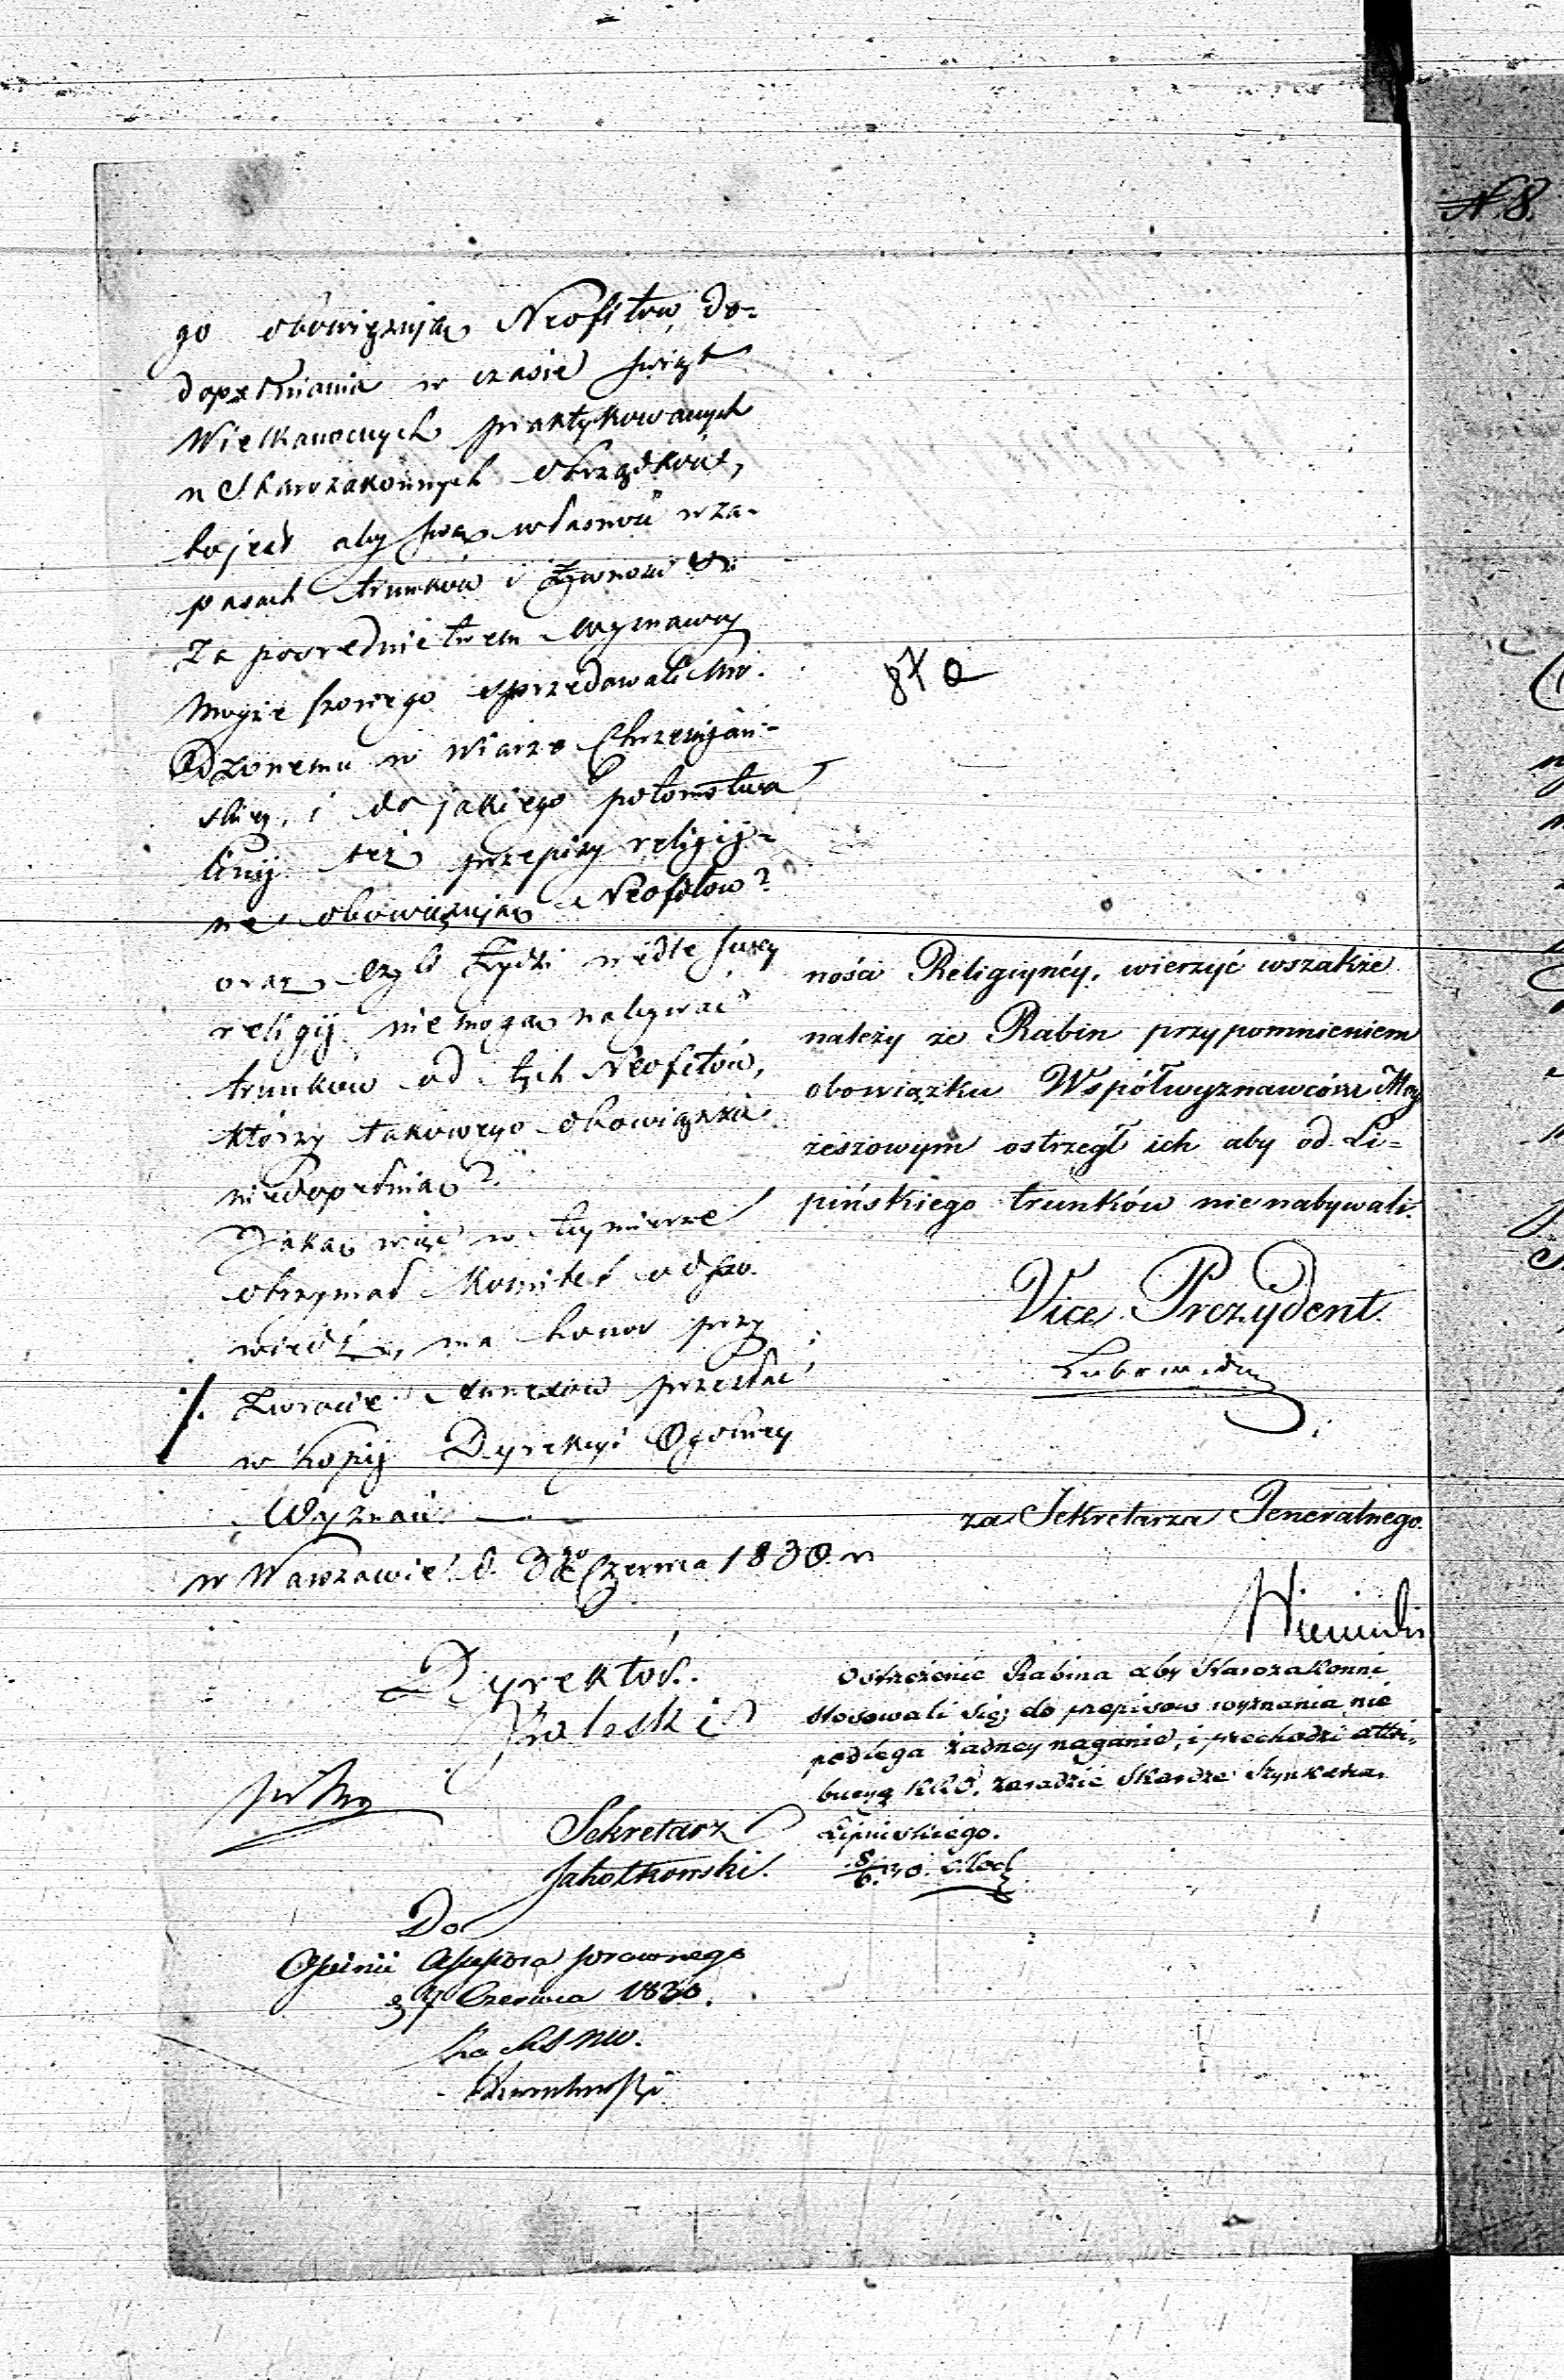 N. 8.
go obowiązują Neofitów do
dopełniania w czasie świąt
Wielkanocnych praktykowanych
u Starozakonnych obrządków,
to jest aby swą własność w za-
pasach trunków i żywności
Za pośrednictwem wyznawcy
Mojżeszowego sprzedawali Uro-
dzonemu w Wierze Chrześcijań-
skiey, i do jakiego potomstwa
linij też przepisy religij-
ne obowiązują Neofitów?
oraz czyli Żydzi wedle swey
religij nie mogą nabywać
trunków od tych Neofitów,
którzy takowego obowiązku
niedopełniają?
Jaką więc w tej mierze
otrzymał Komitet odpo-
wiedź, ma honor przy
zwrocie Annexów przesłać
w kopij Dyrekcyi Ogólney
Wyznań. —
w Warszawie d. Czerwca 1830 r.
Dyrektor
Zaleski
Sekretarz
Jakołkowski.
Do
Opinii Assessora prawnego
d 7 Czerwca 1830.
87 a
ności Religijnéy, wierzyć wszakże
należy że Rabin przypomnieniem
obowiązku Współwyznawcóm Moy
żeszowym ostrzegł ich aby od Li=
pińskiego trunków nie nabywali.
Vice Prezydent.
Lubowidzki
za Sekretarza Jeneralnego.
Ostrzeżenie Rabina aby Starozakonni
stosowali się do przepisow wyznania nie
podlega żadney naganie, i przechodzi attri-
bucyą zaradzić Skardze Szynkarza
Lipińskiego.
8/6 30.